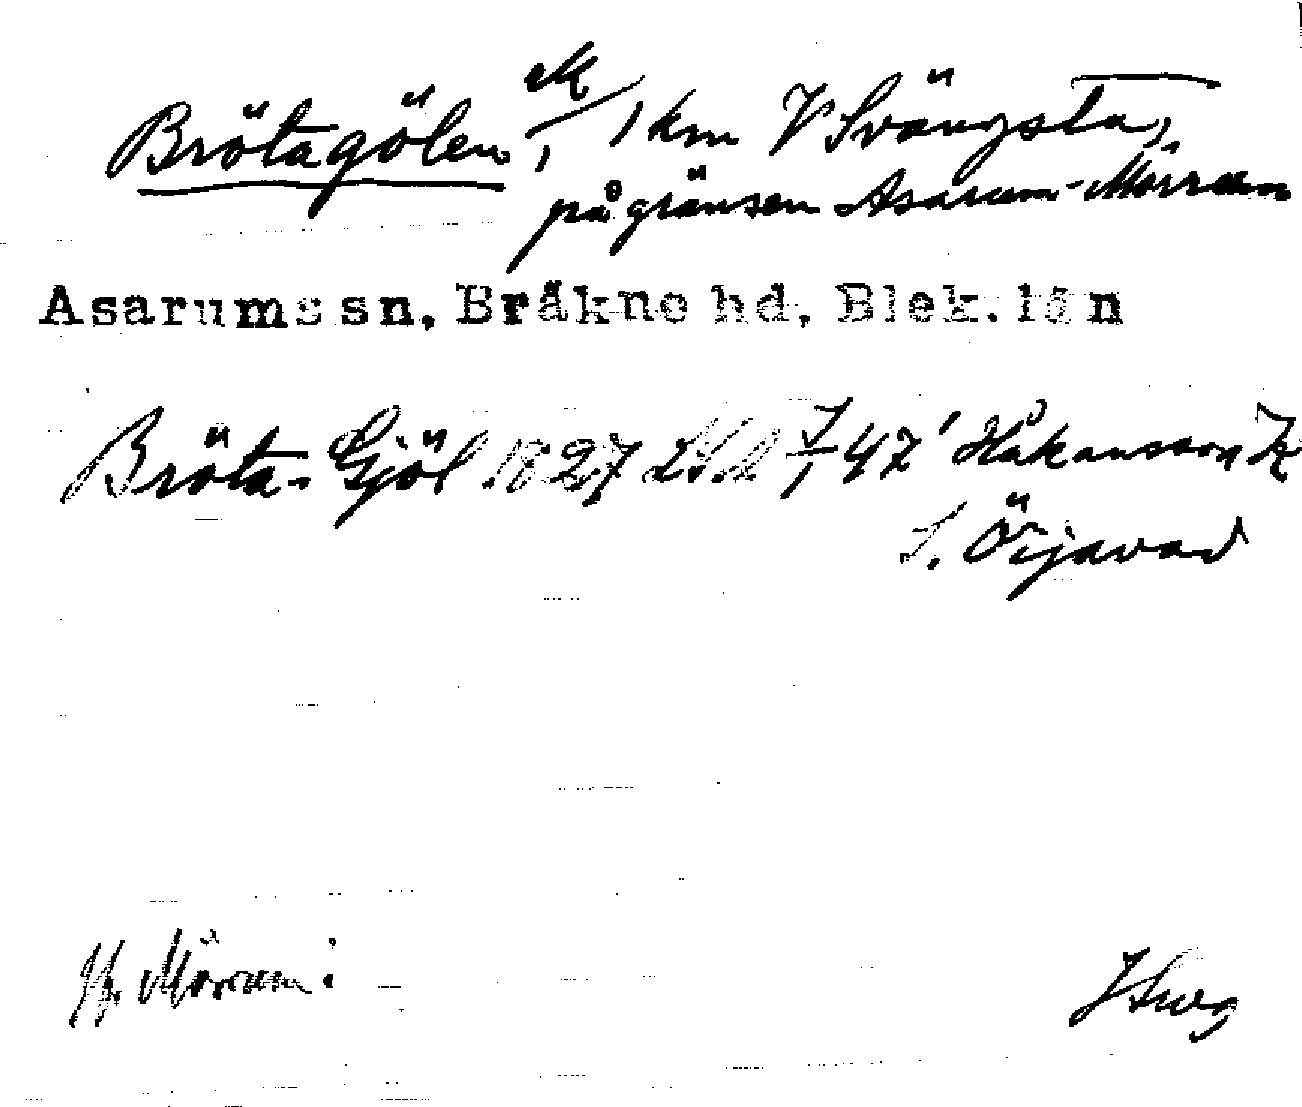 Brötagölen, 1 km V Svängsta,
på gränsen Asarum-Mörrum
Asarums sn, Bräkne hd, Blek. län
Bröta-Gjöl 1827 47' Håkansson
S. Öijavad
Mörrum